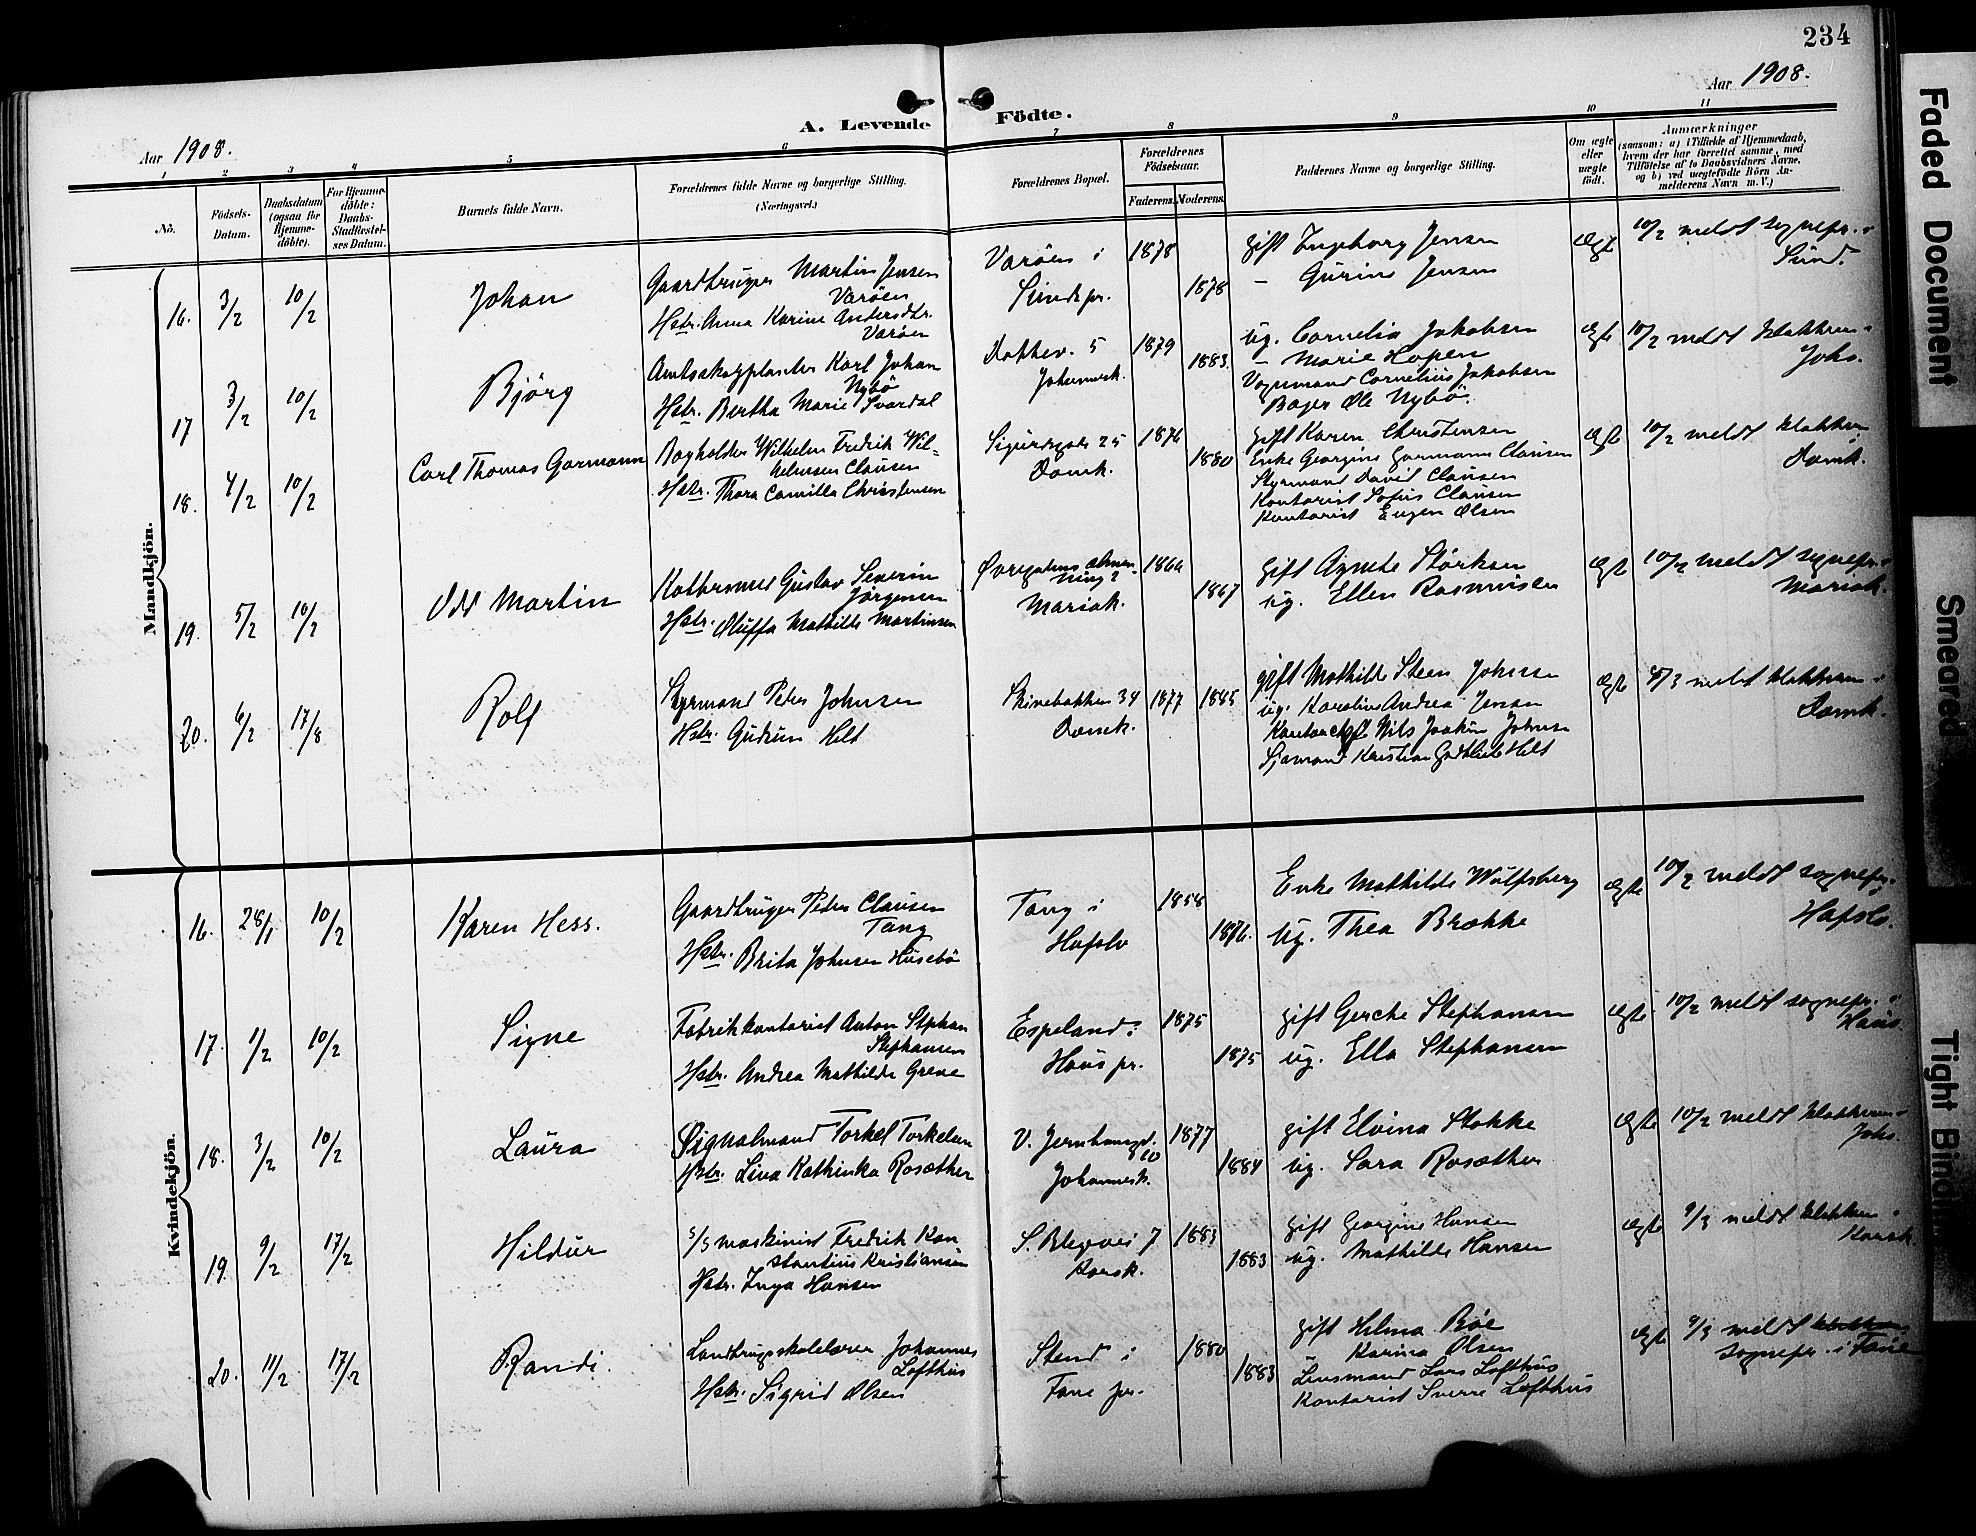 234
Aar 1908.
Aar 1908.
A. Levende Födte.
1 2 3 4 5 6 7 8 9 10 11
No.
Födsels-
Datum.
Daabsdatum
(ogsaa for
Hjemme-
döbte).
For Hjemme-
döbte:
Daabs-
Stadfæstel-
ses Datum.
Barnets fulde Navn.
Forældrenes fulde Navne og borgerlige Stilling.
(Næringsvei.)
Forældrenes Bopæl.
Forældrenes
Födselsaar.
Faderens.
Moderens.
Faddernes Navne og borgerlige Stilling.
Om ægte
eller
uægte
födt.
Anmærkninger
(saasom: a) i Tilfælde af Hjemmedaab,
hvem der har forrettet samme, med
Tilföielse af to Daabsvidners Navne,
og b) ved uægtefödte Börn An-
melderens Navn m. V.)
Mandkjön.
16. 3/2 10/2 Johan
Gaardbruger Martin Jensen
Varöen
Hstr. Anna Karine Andersdtr.
Varöen
Varöen i
Sunds pr.
1878
1878
gift Ingeborg Jensen
– Gurine Jensen
ægte
10/2 meldt sognepr. i
Sund.
17 3/2 10/2 Björg
Amtsskogplanter Karl Johan
Nybö
Hstr. Bertha Marie Svardal
5
Johannesk.
1879
1883.
ug. Cornelia Jakobsen
– Marie Hopen
Vognmand Cornelius Jakobsen
Bager Ole Nybö.
ægte
10/2 meldt klokkeren i
Johs.
18. 4/2 10/2 Carl Thomas Garmann
Bogholder Wilhelm Fredrik Wil-
helmsen Clausen
Hstr. Thora Camilla Christensen
Sigurdsgade 25
Domk.
1876
1880
gift Karen Christensen
Enke Georgine Garmann Clausen
Styrmand David Clausen
Kontorist Sofus Clausen
Kontorist Eugen Olsen
ægte
10/2 meldt klokkeren i
Domk.
19. 5/2 10/2 Odd Martin
Gustav Severin
Jörgensen
Hstr. Oluffa Mathilde Martinsen
Øvregadens almen-
ning 2
Mariak.
1866
1867
gift Agnete Størksen
ug. Ellen Rasmussen
ægte
10/2 meldt sognepr. i
Mariak.
20. 6/2 17/8 Rolf
Styrmand Peter Johnsen
Hstr. Gudrun Helt
Skivebakken 34
Domk.
1877 1885
gift Mathilde Steen Johnsen
ug. Karoline Andrea Jensen
Nils Joakim Johnsen
Sjömand Kristian Gottlieb Helt
ægte
meldt klokkeren i
Domk.
Kvindekjön.
16. 28/1 10/2 Karen Hess.
Gaardbruger Peder Clausen
Tang
Hstr. Brita Johnsen Husebö
Tang i
Hafslo
1858
1876.
Enke Mathilde Wulfsberg
ug. Thea Brække
ægte
10/2 meldt sognepr. i
Hafslo.
17. 1/2 10/2 Signe
Fabrikkontorist Anton Stephan
Stephansen
Hstr. Andrea Mathilde Greve
Espeland i
Haus pr.
1875
1875
gift Gerche Stephansen
ug. Ella Stephansen
ægte
10/2 meldt sognepr. i
Haus.
18. 3/2 10/2 Laura
Signalmand Torkel Torkelsen
Hstr. Lina Kathinka Rosæther
V. Jernbanegd.
Johannesk.
1877
1884
gift Elvina Stokke
ug. Sara Rosæther
ægte
10/2 meldt klokkeren i
Johs.
19. 9/2 17/2 Hildur
S/S maskinist Fredrik Kon
stantius Kristiansen
Hstr. Inga Hansen
S. Blegevei 7
Korsk.
1883
1883
gift Georgine Hansen
ug. Mathilde Hansen
ægte
9/3 meldt klokkeren i
Korsk.
20. 11/2 17/2 Randi.
Landbrugsskolelærer Johannes
Lofthus
Hstr. Sigrid Olsen
Stend i
Fane pr.
1880
1883
gift Helma Böe
Karina Olsen
Lensmand Lars Lofthus
Kontorist Sverre Lofthus
ægte
9/3 meldt klokkeren
sognepr. i Fane
Faded Document
Smeared
Tight Bindin